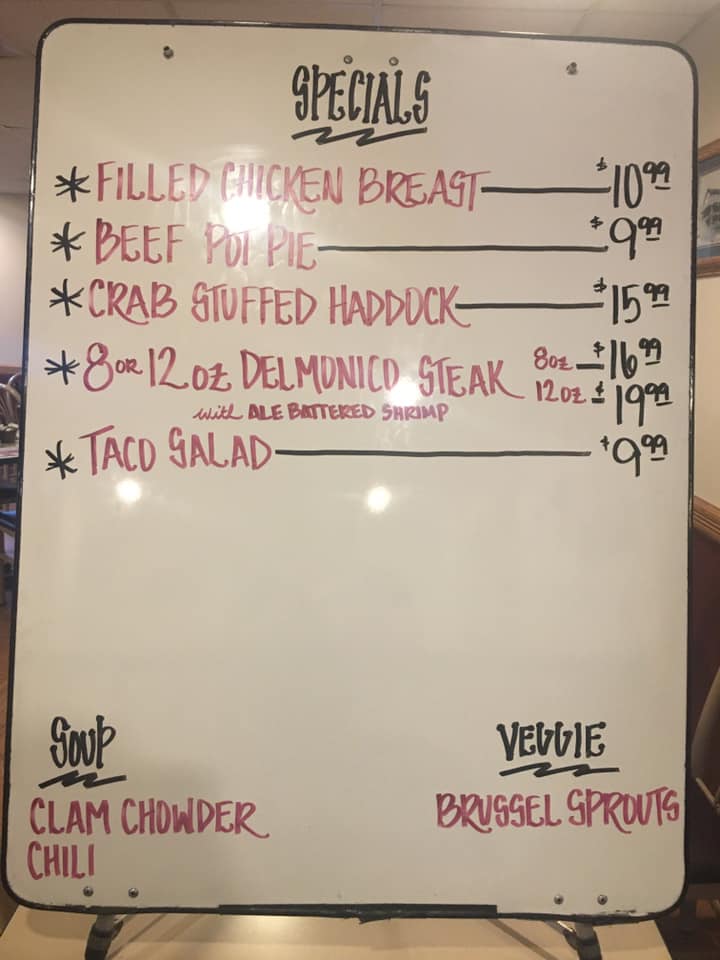 SPECIALS
* FILLED CHICKEN BREAST $10.99
* BEEF POT PIE $9.99
* CRAB STUFFED HADDOCK $15.99
* 8 OR 12 OZ DELMONICO STEAK 8oz $16.99
12 OZ $19.99
with ALE BATTERED SHRIMP
* TACO SALAD $9.99
SOUP
CLAM CHOWDER
CHILI
VEGGIE
BRUSSEL SPROUTS